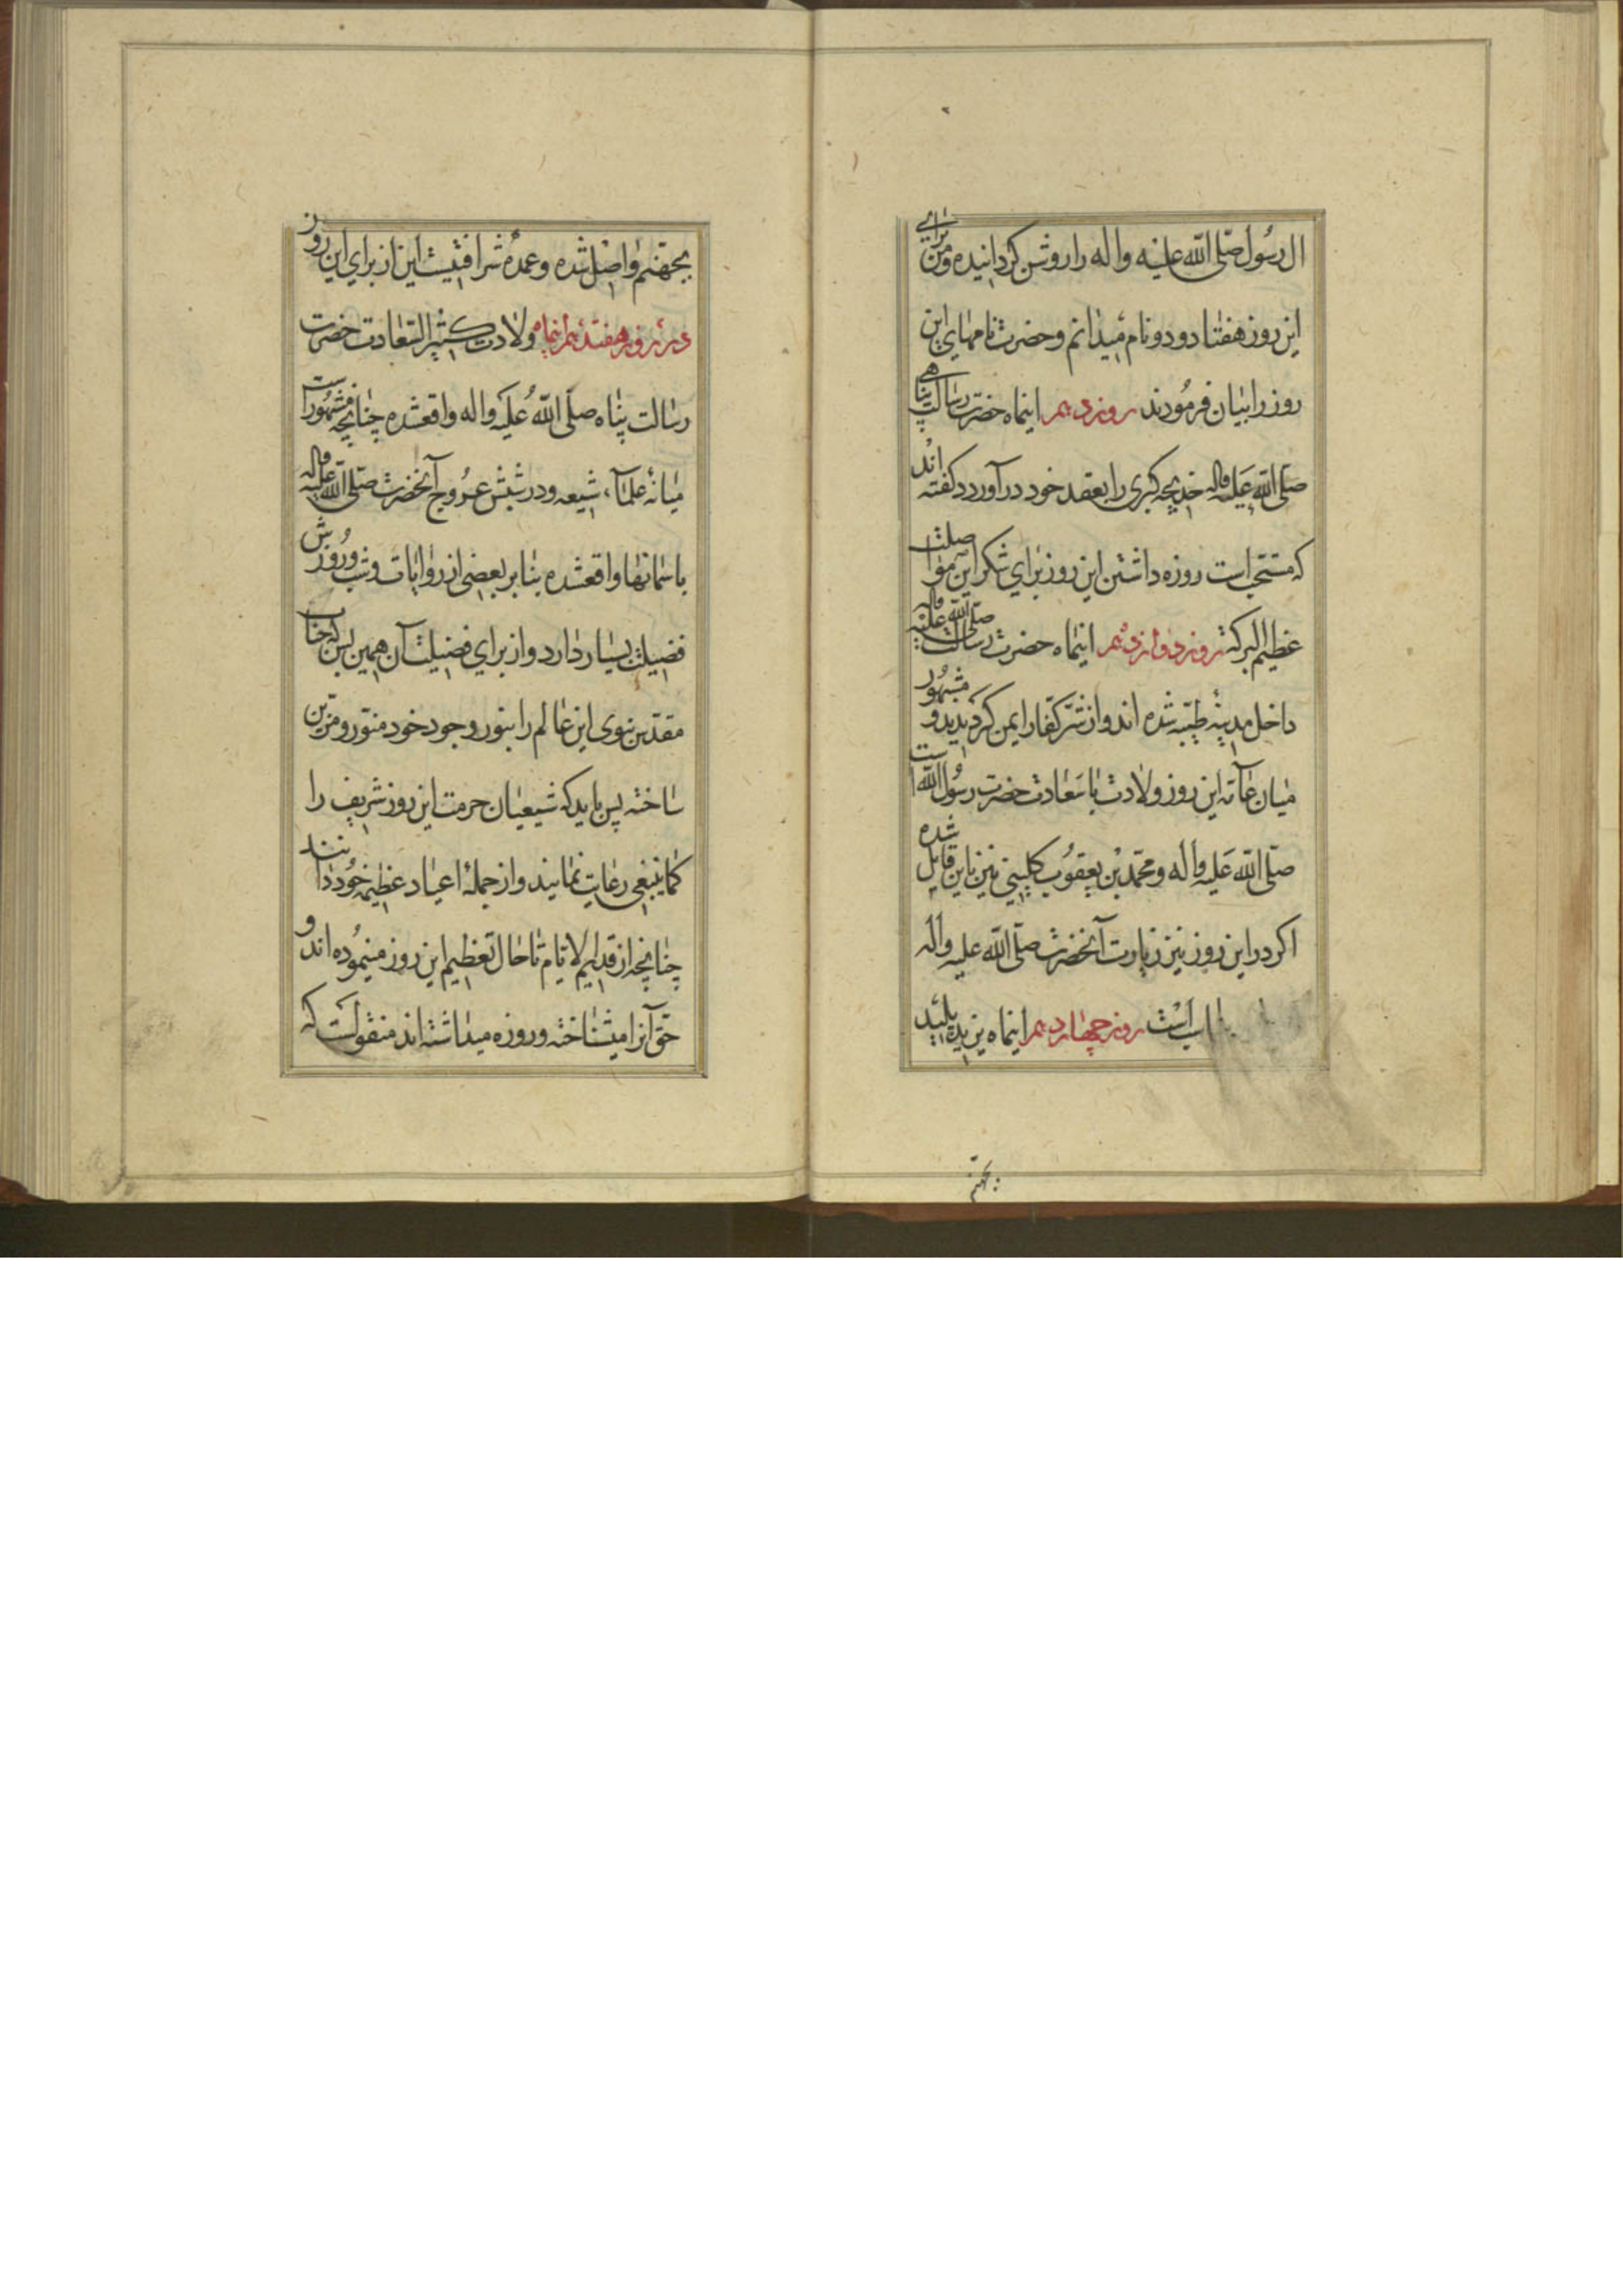 ال رسول صلّی الله علیه واله را روشن گردانیده و من برای
این روز هفتاد و دو نام میدانم و حضرت نامهای این
روز را بیان فرمودند روز دهم اینماه حضرت رسالت پناهی
صلّی الله علیه واله خدیجه کبری را بعقد خود درآورد و گفته اند
که مستحبّ است روزه داشتن این روز برای شکر این مواصلت
عظیم البرکة روز دوازدهم اینماه حضرت رسالت صلّی الله علیه واله
داخل مدینهٔ طیّبه شده اند و از شرّ کفّار ایمن گردیدید و مشهور
میان عامّه این روز ولادت با سعادت حضرت رسول الله است
صلّی الله علیه واله و محمّد بن یعقوب کلینی نیز باین قایل شده
اگر در این روز نیز زیارت آنحضرت صلّی الله علیه واله
است روز چهاردهم اینماه یزید پلید
بجهنّم
بجهنّم واصل شده و عمدهٔ شرافتیست این از برای این روز
در روز هفتدهم اینماه ولادت کثیر السّعادت حضرت
رسالت پناه صلّی الله علیه واله واقعشده چنانچه مشهور است
میانهٔ علمآء شیعه و در شبش عروج آنحضرت صلّی الله علیه واله
باسمانها واقعشده بنابر بعضی از روایات و شب و روزش
فضیلت بسیار دارد و از برای فضیلت آن همین بس که جناب
مقدّس نبوی این عالم را بنور وجود خود منوّر و مزیّن
ساخته پس باید که شیعیان حرمت این روز شریف را
کما ینبغی رعایت نمایند و از جملهٔ اعیاد عظیمه خود دانند
چنانچه از قدیم الایّام تا حال تعظیم این روز مینموده اند و
حقّ آنرا میشناخته و روزه میداشته اند منقولست که